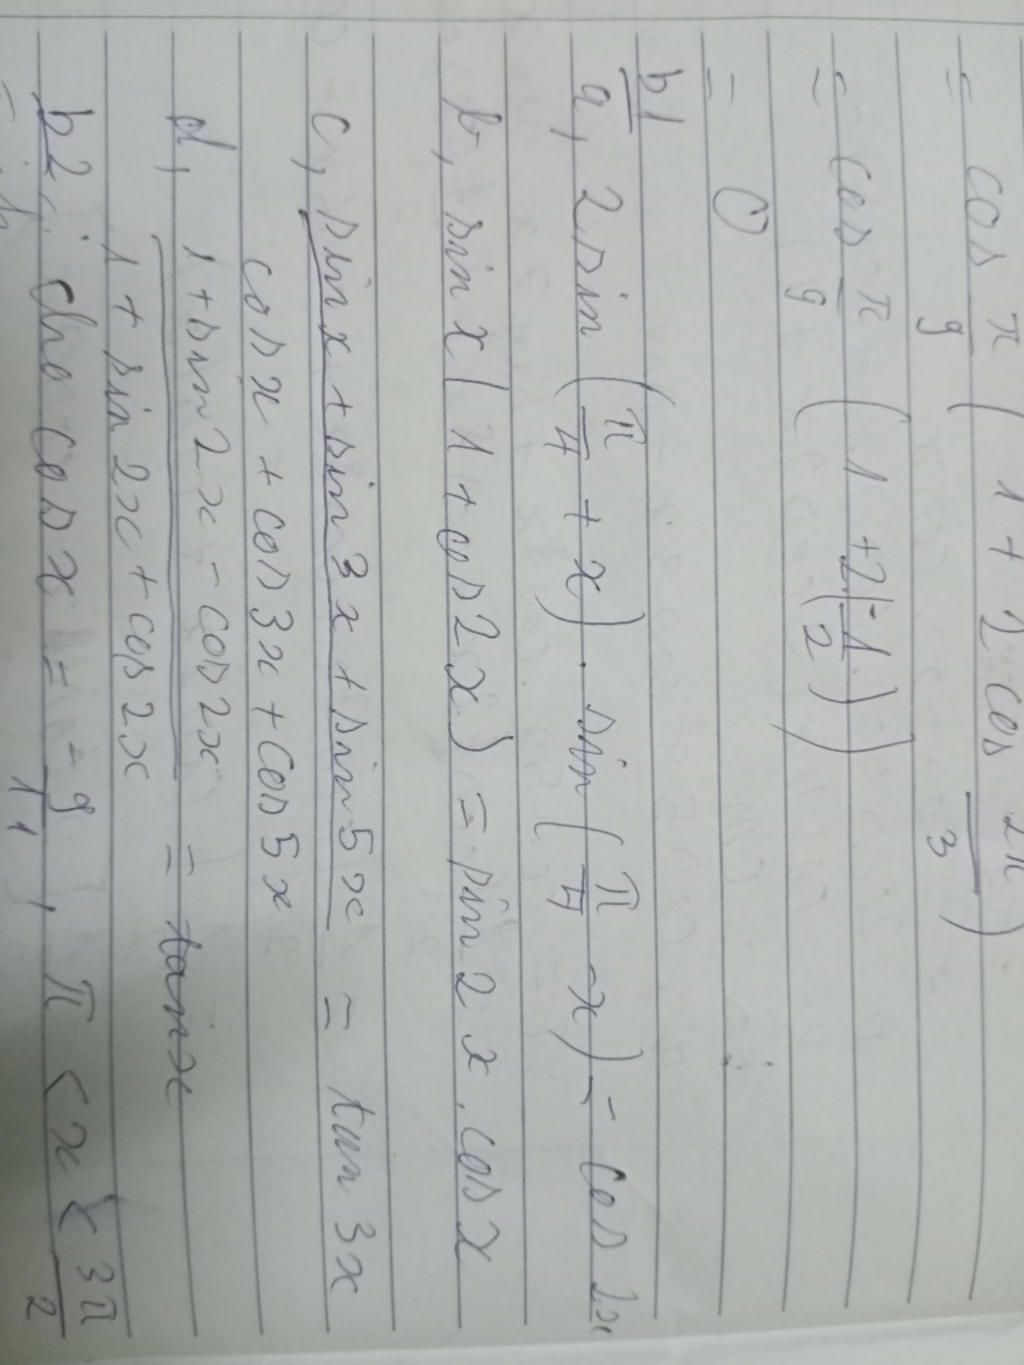 = cos π/9 ( 1 + 2 cos 2π/3 )
= cos π/9 ( 1 + 2(-1/2) )
= 0
b1
a, 2 sin ( π/4 + x ) . sin ( π/4 - x ) = cos 2x
b, sin x ( 1 + cos 2x ) = sin 2x . cos x
c, sin x + sin 3x + sin 5x / cos x + cos 3x + cos 5x = tan 3x
d, 1 + sin 2x - cos 2x / 1 + sin 2x + cos 2x = tan x
b2 : cho cos x = -9/11 , π < x < 3π/2